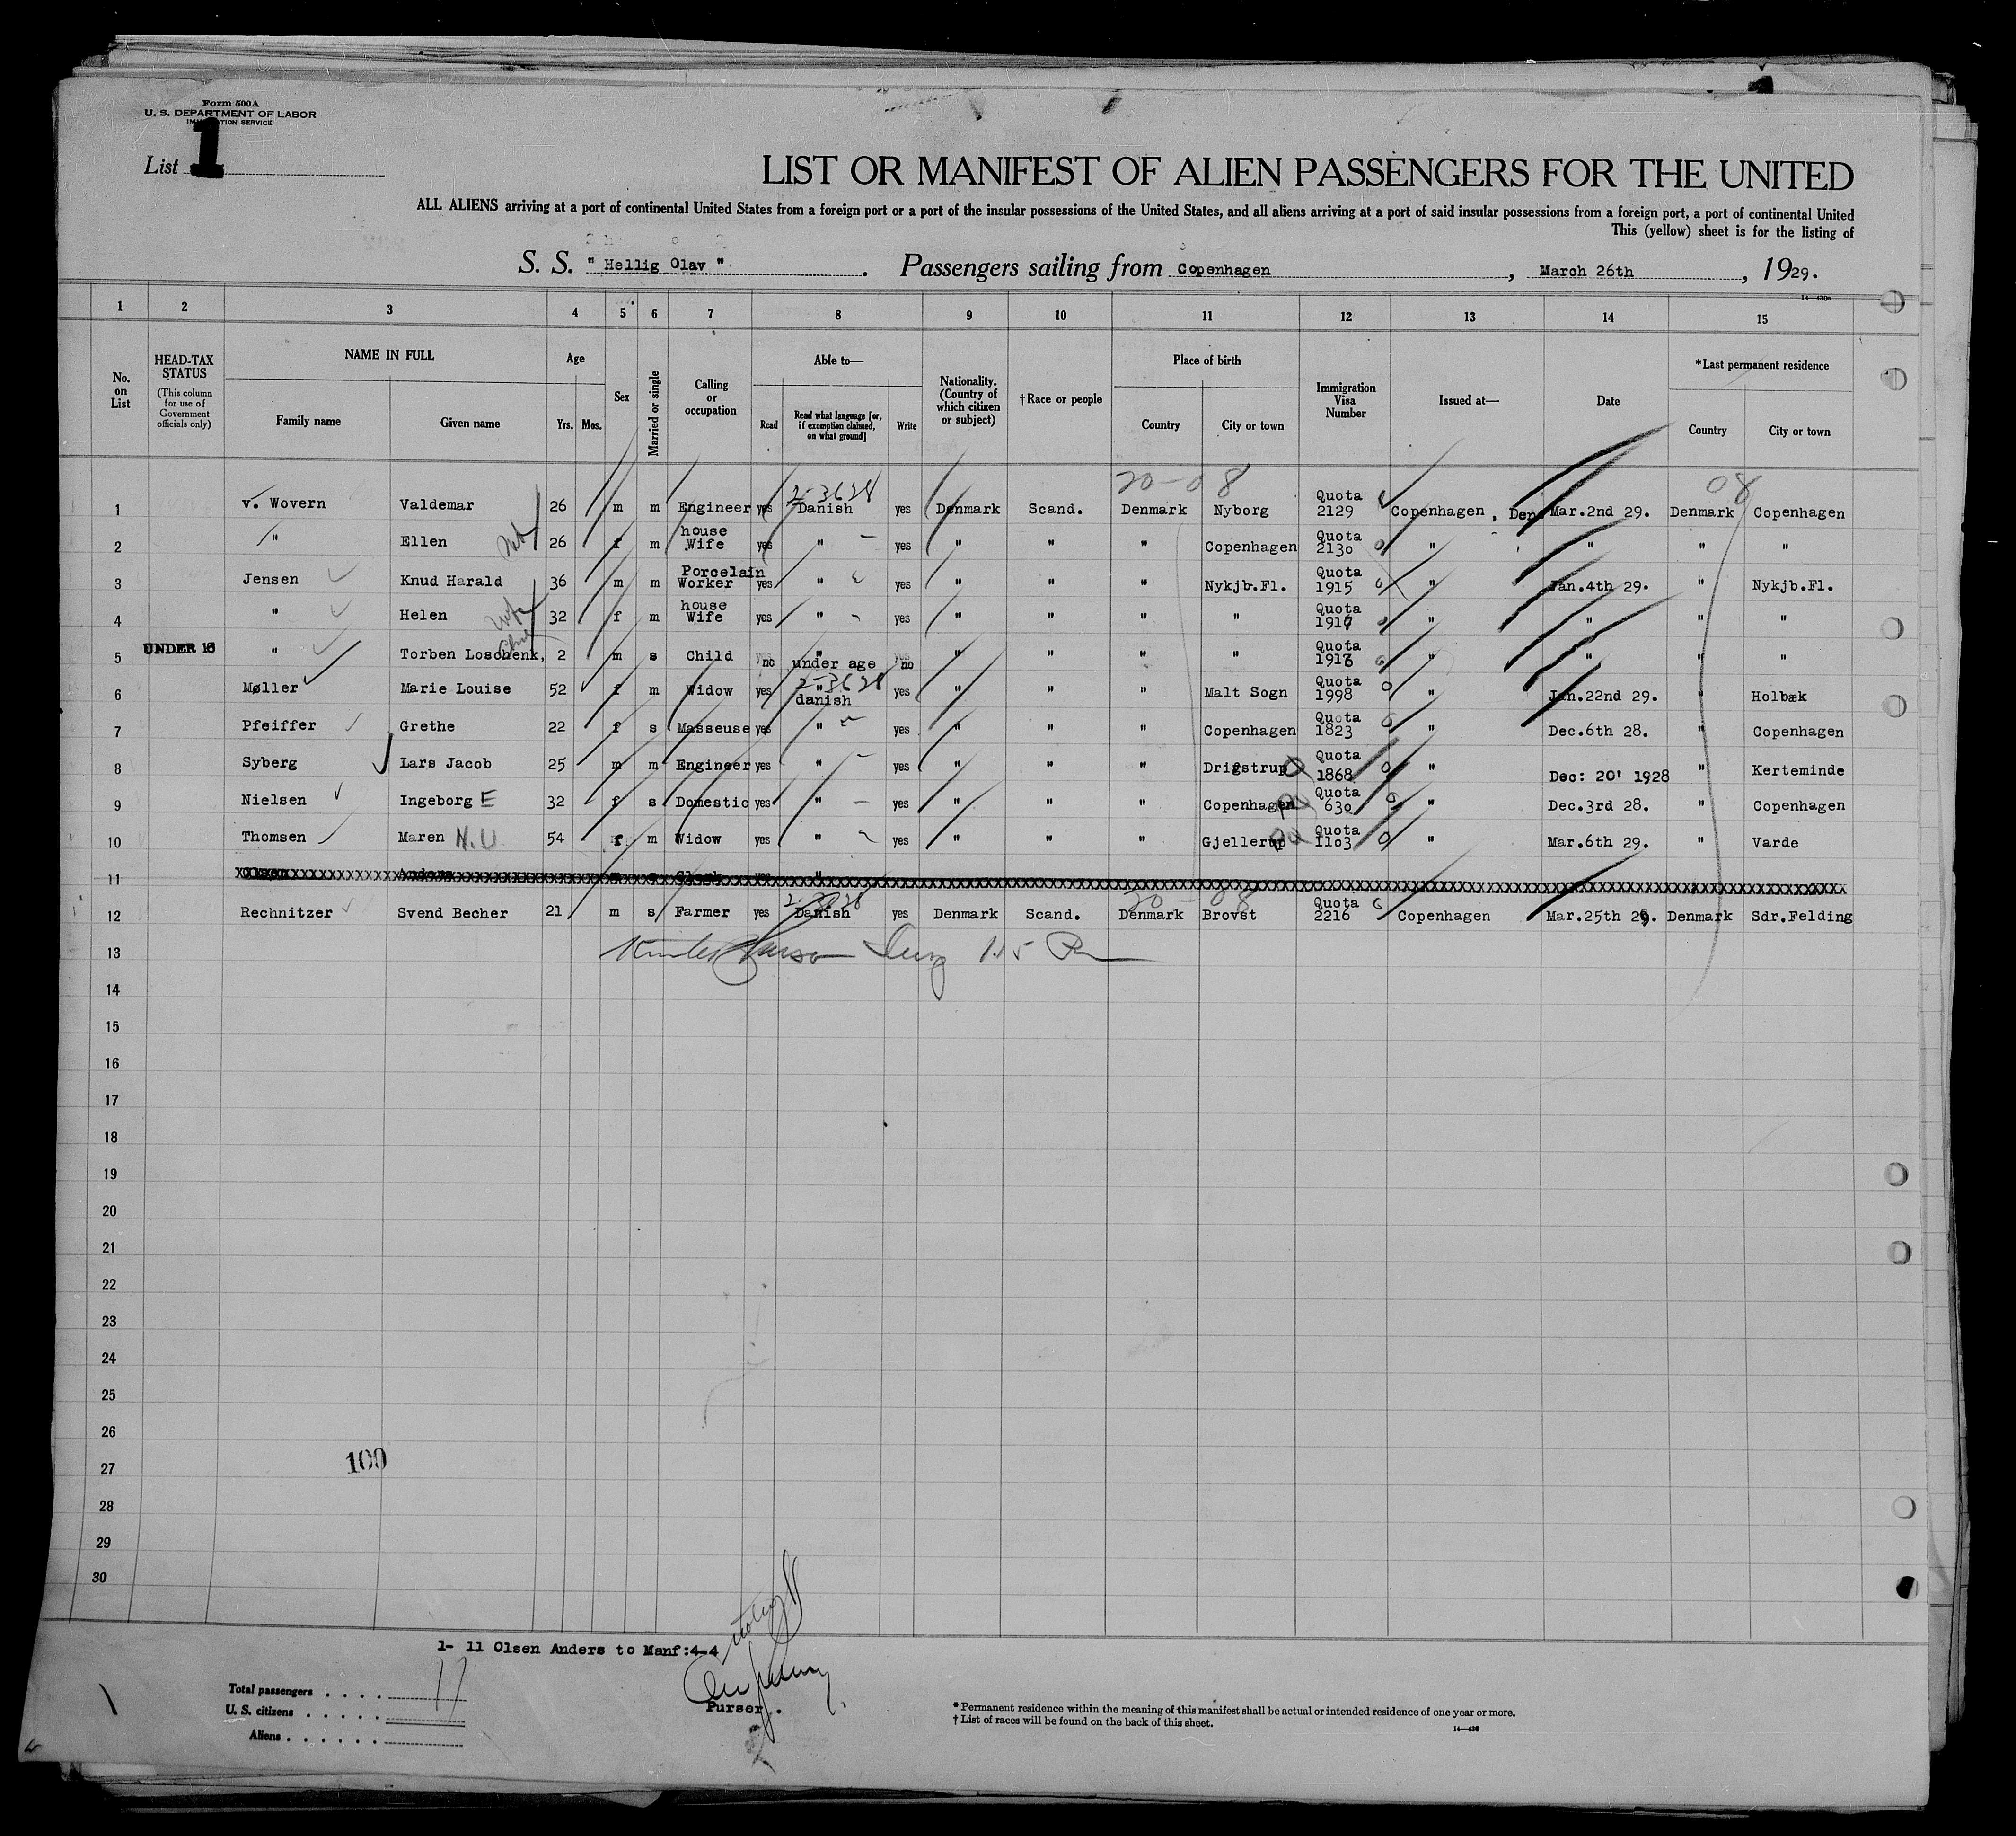 Form 500A
U. S. DEPARTMENT OF LABOR
IMMIGRATION SERVICE
List 1
LIST OR MANIFEST OF ALIEN PASSENGERS FOR THE UNITED
ALL ALIENS arriving at a port of continental United States from a foreign port or a port of the insular possessions of the United States, and all aliens arriving at a port of said insular possessions from a foreign port, a port of continental United
This (yellow) sheet is for the listing of
S. S. " Hellig Olav ". Passengers sailing from Copenhagen, March 26th, 1929.
14—430a
1 2 3 4 5 6 7 8 9 10 11 12 13 14 15
No. on List
HEAD-TAX STATUS
(This column for use of Government officials only)
NAME IN FULL
Family name Given name
Age
Yrs. Mos.
Sex
Married or single
Calling or occupation
Able to—
Read Read what language [or, if exemption claimed, on what ground] Write
Nationality. (Country of which citizen or subject)
†Race or people
Place of birth
Country City or town
Immigration Visa Number
Issued at—
Date
*Last permanent residence
Country City or town
2-3628 20-08 08
1 v. Wovern Valdemar 26 m m Engineer yes Danish yes Denmark Scand. Denmark Nyborg Quota 2129 Copenhagen, Den. Mar.2nd 29. Denmark Copenhagen
2 " Ellen 26 f m house Wife yes " yes " " " Copenhagen Quota 2130 " " " "
3 Jensen Knud Harald 36 m m Porcelain Worker yes " yes " " " Nykjb.Fl. Quota 1915 " Jan.4th 29. " Nykjb.Fl.
4 " Helen Wife 32 f m house Wife yes " yes " " " " Quota 1917 " " " "
5 UNDER 16 " Torben Loschenk, 2 m s Child no under age no " " " " Quota " " " "
2-3628
6 Møller Marie Louise 52 f m Widow yes " danish yes " " " Malt Sogn Quota 1998 " Jan.22nd 29. " Holbæk
7 Pfeiffer Grethe 22 f s Masseuse yes " yes " " " Copenhagen Quota 1823 " Dec.6th 28. " Copenhagen
8 Syberg Lars Jacob 25 m m Engineer yes " yes " " " Drigstrup Quota 1868 " Dec: 20' 1928 " Kerteminde
9 Nielsen Ingeborg E 32 f s Domestic yes " yes " " " Copenhagen Quota 630 " Dec.3rd 28. " Copenhagen
10 Thomsen Maren N.U 54 f m Widow yes " yes " " " Gjellerup Quota 1103 " Mar.6th 29. " Varde
11 Olsen Anders m s Clerk yes "
20-08
12 Rechnitzer Svend Becher 21 m s Farmer yes Danish yes Denmark Scand. Denmark Brovst Quota 2216 Copenhagen Mar.25th 29. Denmark Sdr.Felding
13
14
15
16
17
18
19
20
21
22
23
24
25
26
27
100
28
29
30
1- 11 Olsen Anders to Manf:4-4
Total passengers . . . . 11
U. S. citizens . . . . .
Aliens . . . . . .
Purser.
* Permanent residence within the meaning of this manifest shall be actual or intended residence of one year or more.
† List of races will be found on the back of this sheet.
14—430